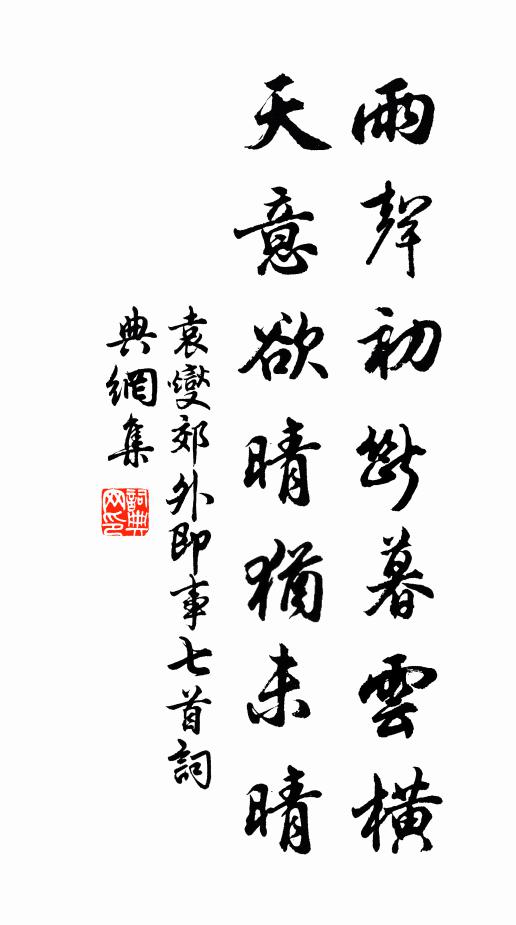 雨聲初斷暮雲橫
天意欲晴猶未晴
袁燮郊外即事七首詞
典網集
詞典網印